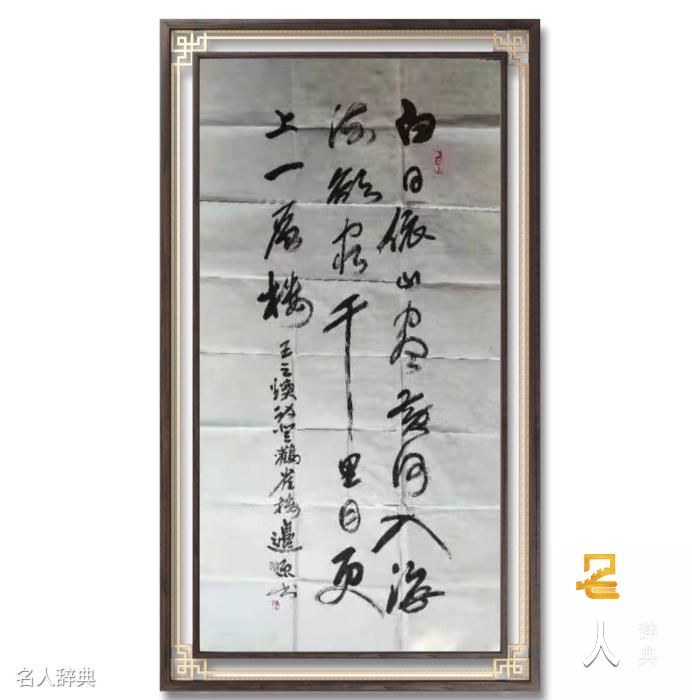 白日依山尽黄河入海
流欲穷千里目更
上一层楼
王之焕诗登鹳雀楼 边源书
名人辞典
名人辞典